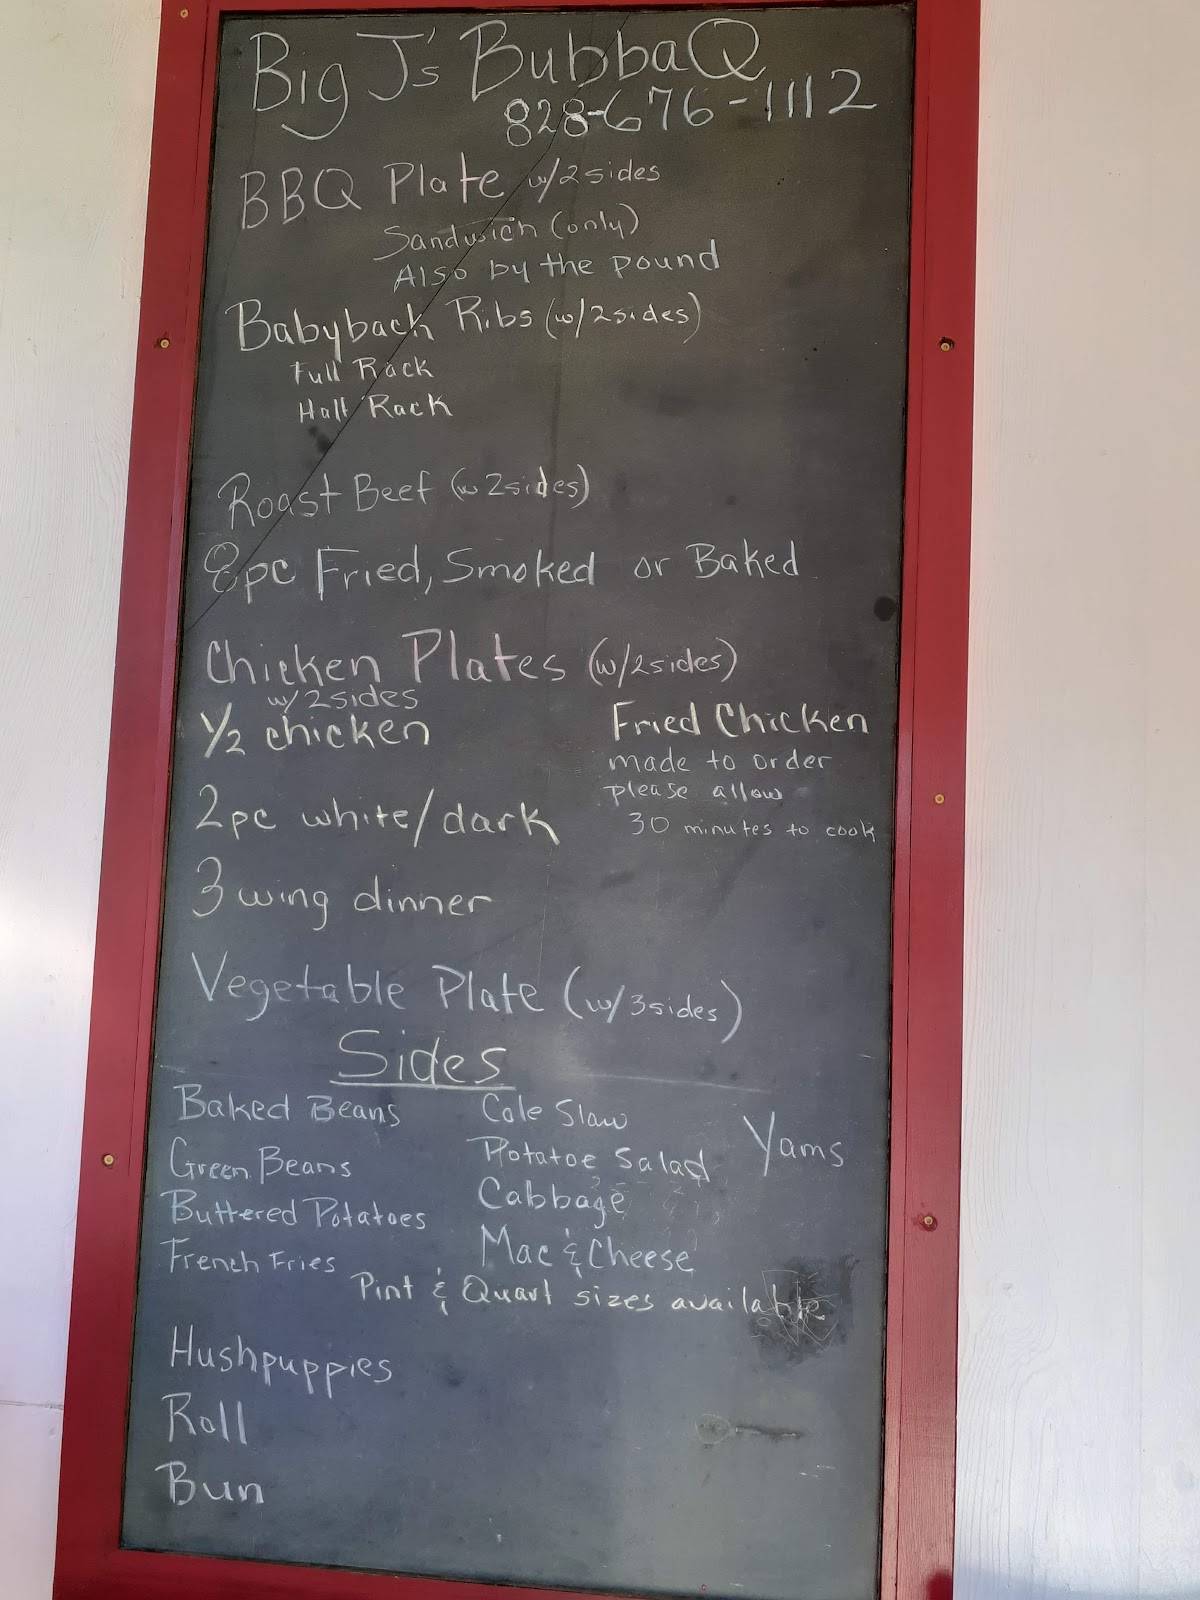 Big J's BubbaQ
828-676-1112
BBQ Plate w/2 sides
Sandwich (only)
Also by the pound
Babyback Ribs (w/2sides)
Full Rack
Half Rack
Roast Beef (w 2sides)
8pc Fried, Smoked or Baked
Chicken Plates (w/2sides)
w/ 2sides
1/2 chicken
2pc white/dark
3 wing dinner
Fried Chicken
made to order
please allow
30 minutes to cook
Vegetable Plate (w/3sides)
Sides
Baked Beans
Green Beans
Buttered Potatoes
French Fries
Cole Slaw
Potatoe Salad
Cabbage
Mac & Cheese
Yams
Pint & Quart sizes available
Hushpuppies
Roll
Bun